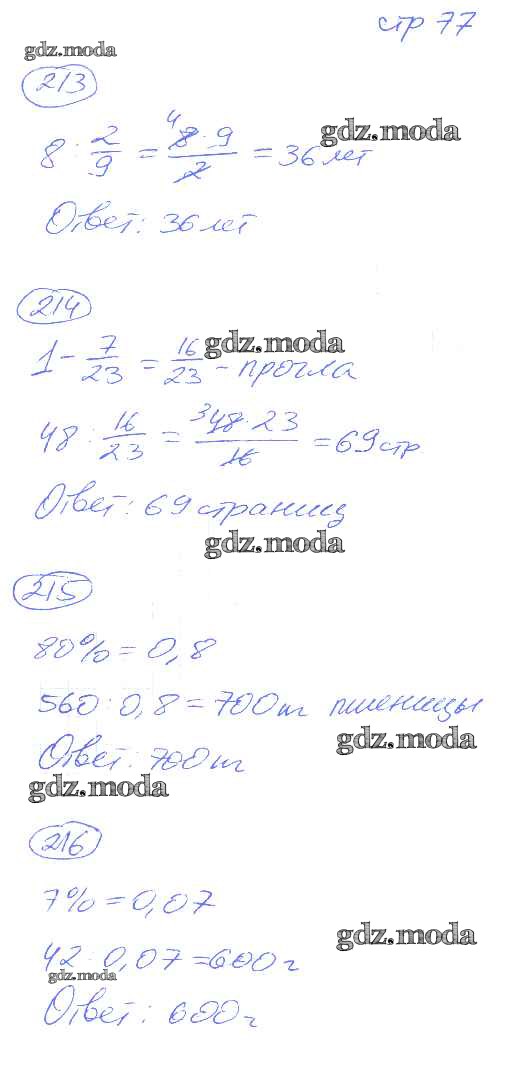 стр 77
gdz.moda
213
8 : 2/9 = 8·9/2 = 36 лет
4
gdz.moda
Ответ: 36 лет
214
1 - 7/23 = 16/23 - прочла
gdz.moda
48 : 16/23 = 48·23/16 = 69 стр
3
Ответ: 69 страниц
gdz.moda
215
80% = 0,8
560 : 0,8 = 700 т пшеницы
gdz.moda
Ответ: 700 т
gdz.moda
216
7% = 0,07
gdz.moda
42 : 0,07 = 600 г
gdz.moda
Ответ: 600 г